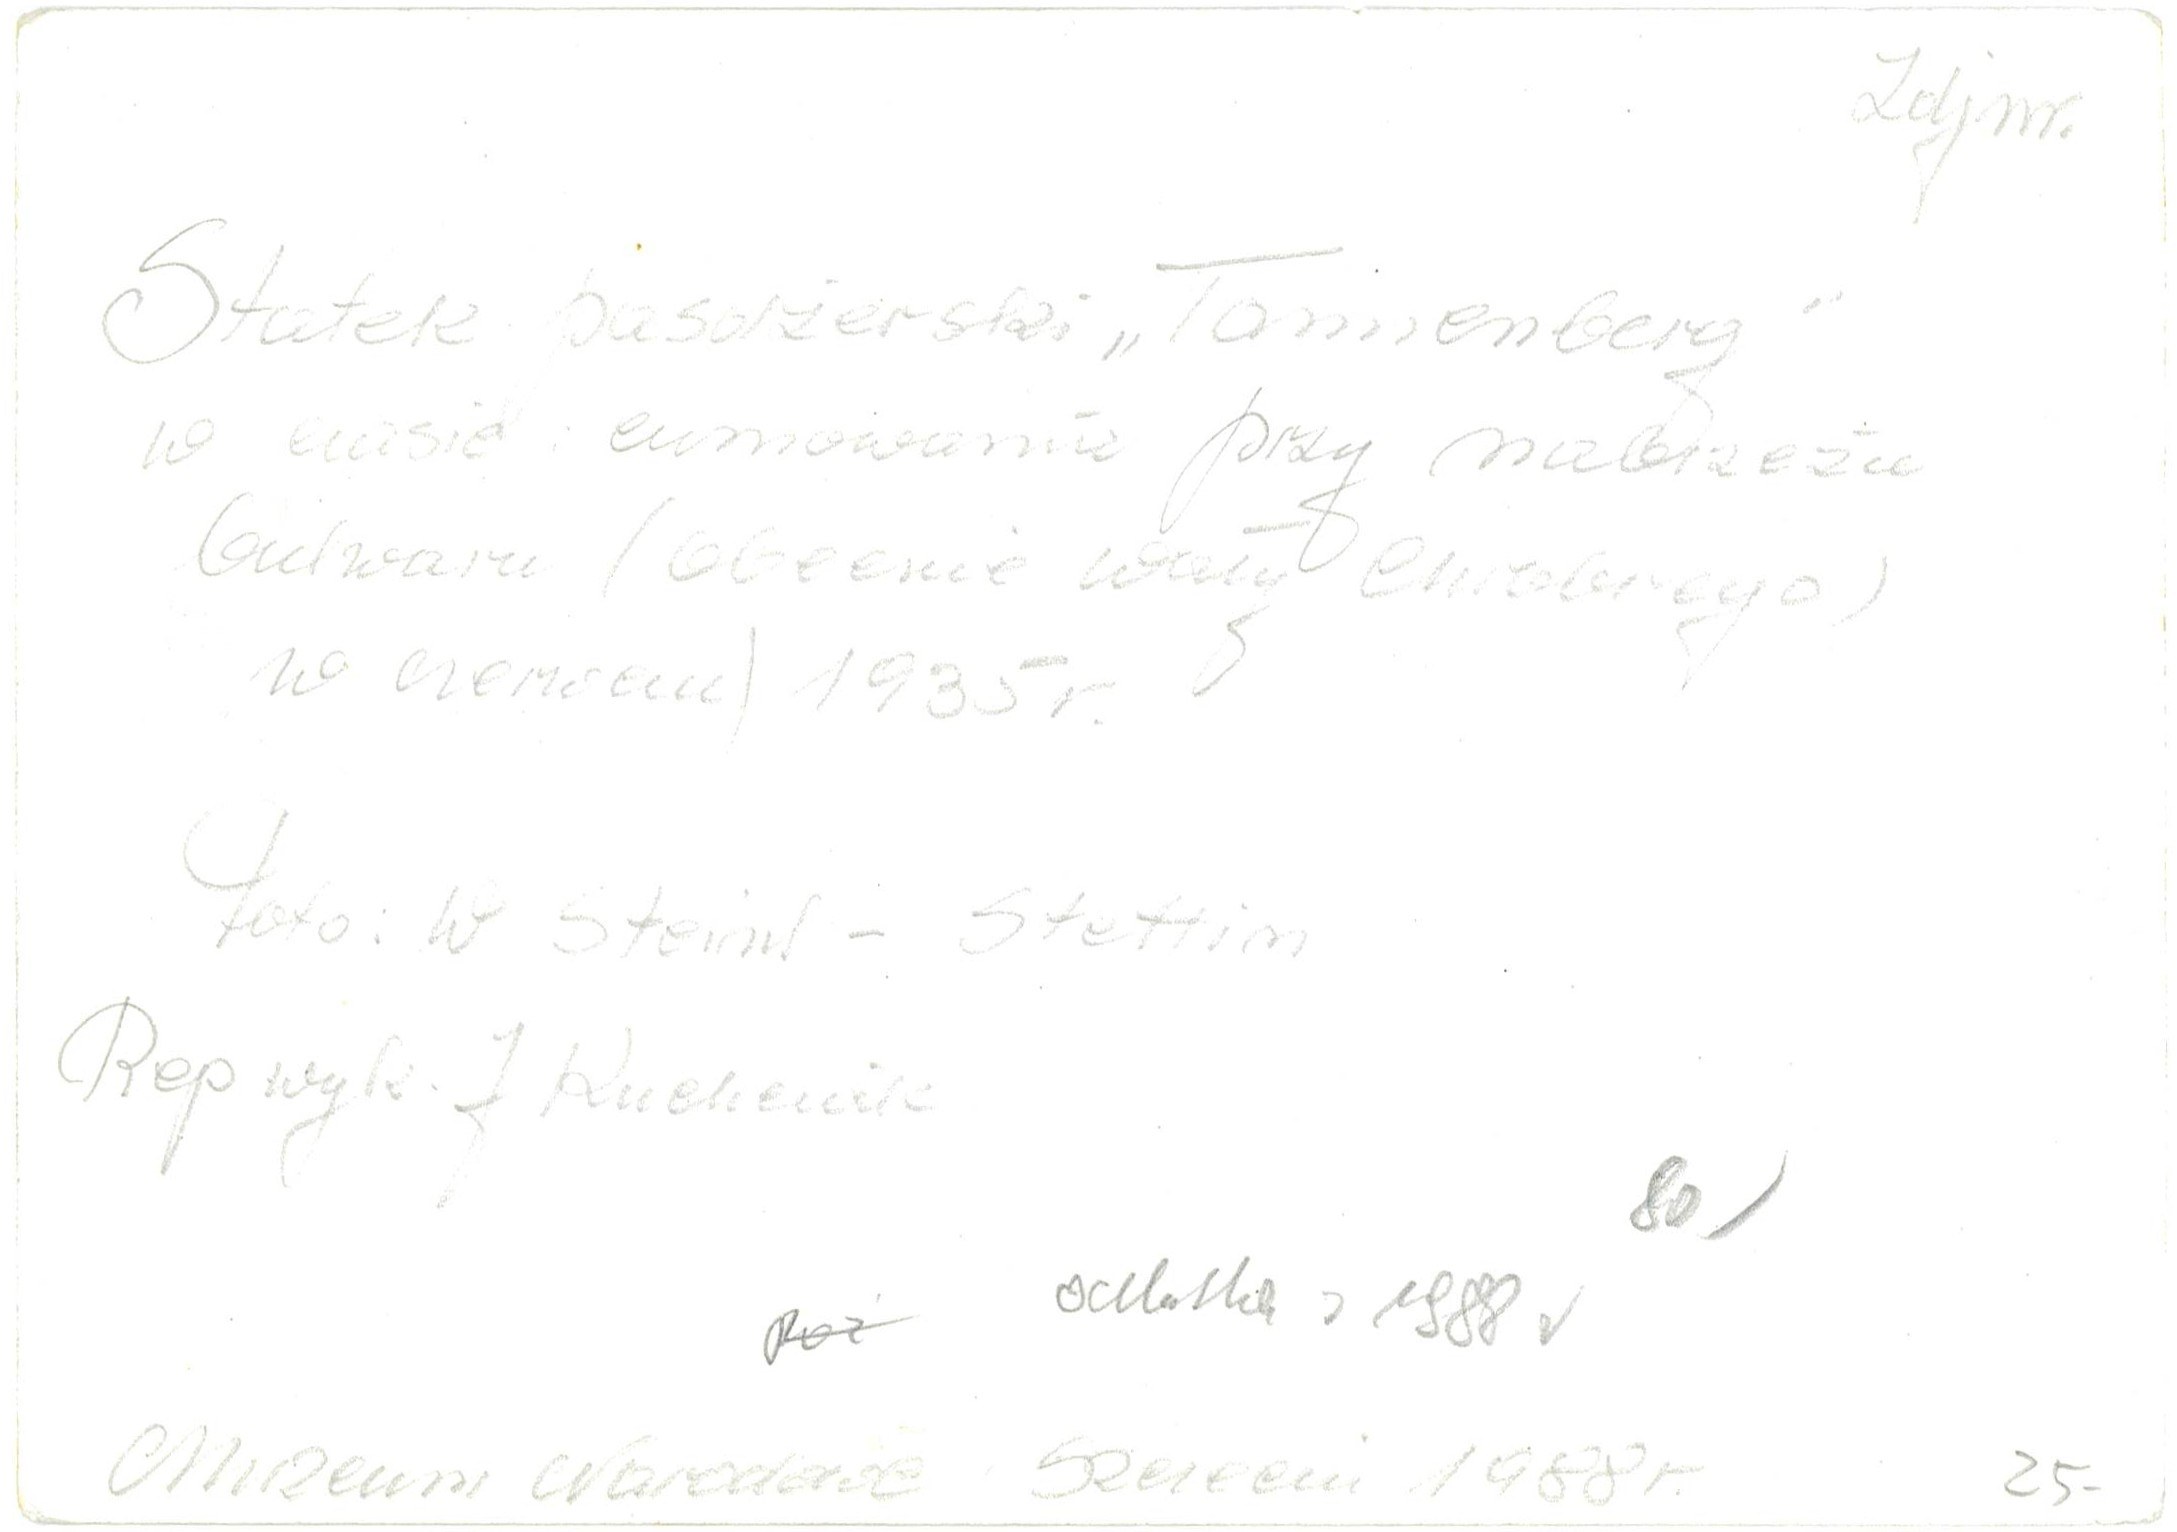 Zdj nr.
Statek pasażerski „Tannenberg”
w czasie cumowania przy nabrzeżu
bulwaru (obecnie Wały Chrobrego)
w czerwcu) 1935 r.
foto: W Steinl - Stettin
Rep wyk. J Kuchenik
80
odbitka z 1988 r
Muzeum Narodowe Szczecin 1988 r.
25-